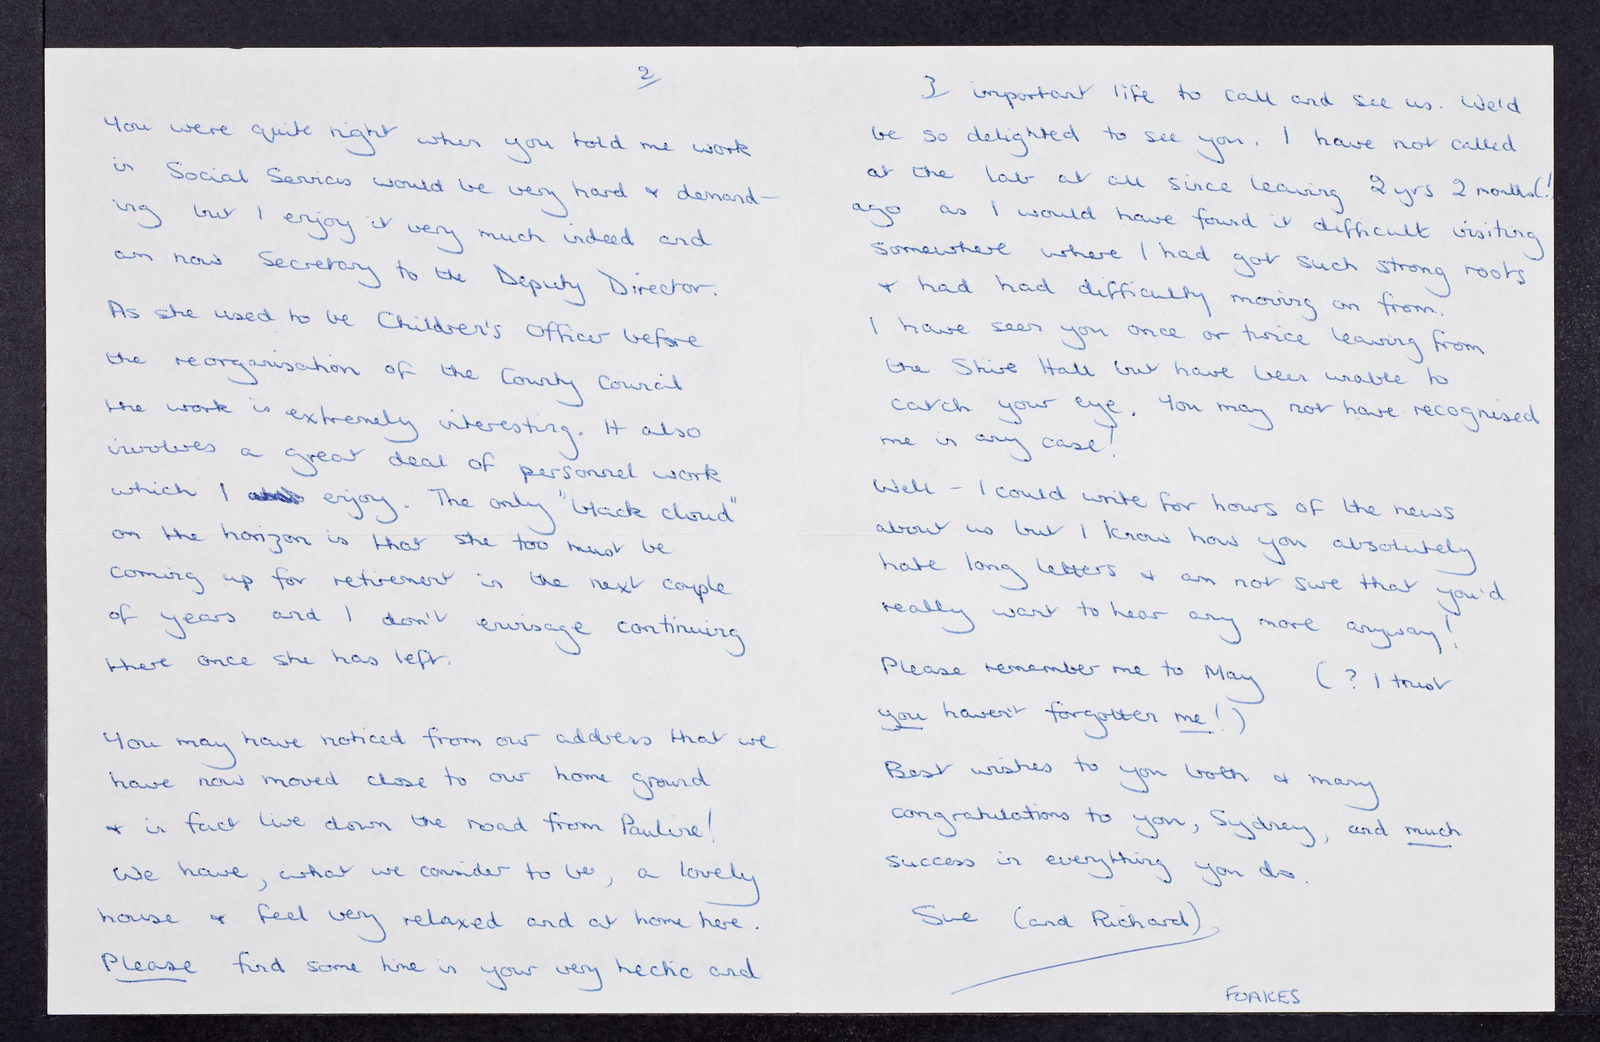 2
You were quite right when you told me work
in Social Services would be very hard & demand-
ing but I enjoy it very much indeed and
am now Secretary to the Deputy Director.
As she used to be Children's Officer before
the reorganisation of the County Council
the work is extremely interesting. It also
involves a great deal of personnel work
which I enjoy. The only "black cloud"
on the horizon is that she too must be
coming up for retirement in the next couple
of years and I don't envisage continuing
there once she has left.
You may have noticed from our address that we
have now moved close to our home ground
& in fact live down the road from Pauline!
We have, what we consider to be, a lovely
house & feel very relaxed and at home here.
Please find some time in your very hectic and
3 important life to call and see us. We'd
be so delighted to see you. I have not called
at the lab at all since leaving 2 yrs 2 months(!
ago as I would have found it difficult visiting
somewhere where I had got such strong roots
& had had difficulty moving on from.
I have seen you once or twice leaving from
the Shire Hall but have been unable to
catch your eye. You may not have recognised
me in any case!
Well - I could write for hours of the news
about us but I know how you absolutely
hate long letters & am not sure that you'd
really want to hear any more anyway!
Please remember me to May (? I trust
you haven't forgotten me!)
Best wishes to you both & many
congratulations to you, Sydney, and much
success in everything you do.
Sue (and Richard)
FOAKES